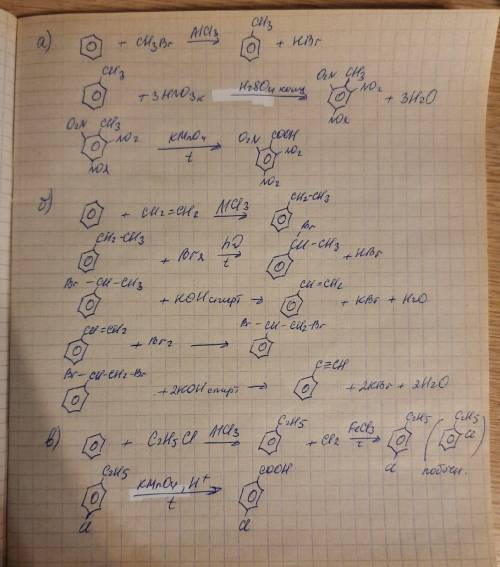 а) + CH3Br AlCl3 → CH3 + HBr
CH3 + 3HNO3к H2SO4 конц → O2N CH3 NO2 NO2 + 3H2O
O2N CH3 NO2 NO2 KMnO4 t → O2N COOH NO2 NO2
б) + CH2=CH2 AlCl3 → CH2-CH3
CH2-CH3 + Br2 hν t → Br CH-CH3 + HBr
Br-CH-CH3 + KOH спирт → CH=CH2 + KBr + H2O
CH=CH2 + Br2 → Br-CH-CH2-Br
Br-CH-CH2-Br + 2KOH спирт → C≡CH + 2KBr + 2H2O
в) + C2H5Cl AlCl3 → C2H5 + Cl2 FeCl3 t → C2H5 Cl ( C2H5 Cl )
C2H5 Cl KMnO4, H+ t → COOH Cl